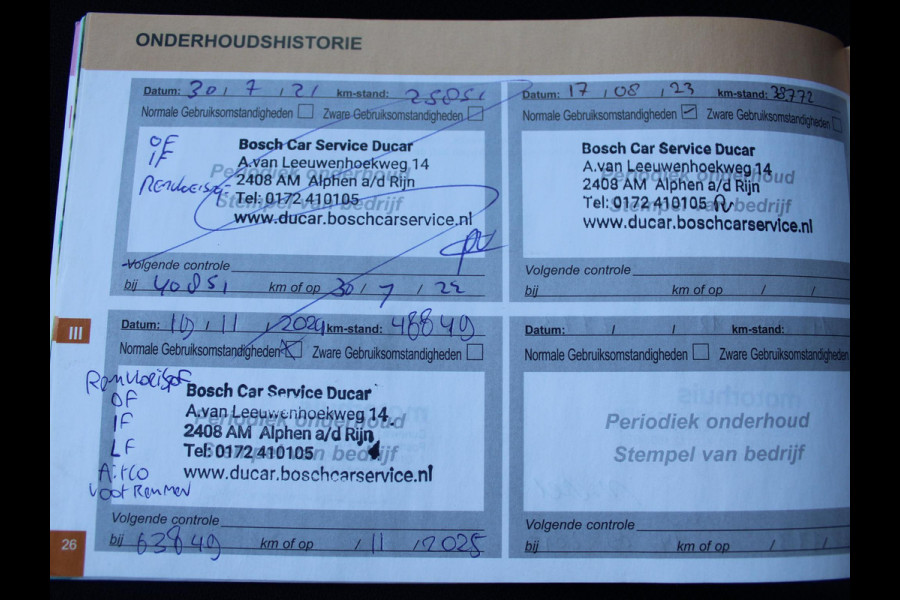 ONDERHOUDSHISTORIE
Datum: 30 / 7 / 21 km-stand: 25851
Normale Gebruiksomstandigheden Zware Gebruiksomstandigheden
OF
IF
Remvloeistof
Bosch Car Service Ducar
A.van Leeuwenhoekweg 14
2408 AM Alphen a/d Rijn
Tel: 0172 410105
www.ducar.boschcarservice.nl
Periodiek onderhoud
Stempel van bedrijf
Volgende controle
bij 40851 km of op 30 / 7 / 22
Datum: 17 / 08 / 23 km-stand: 38772
Normale Gebruiksomstandigheden Zware Gebruiksomstandigheden
Bosch Car Service Ducar
A.van Leeuwenhoekweg 14
2408 AM Alphen a/d Rijn
Tel: 0172 410105
www.ducar.boschcarservice.nl
Periodiek onderhoud
Stempel van bedrijf
Volgende controle
bij km of op / /
III
Datum: 19 / 11 / 2024 km-stand: 48849
Normale Gebruiksomstandigheden Zware Gebruiksomstandigheden
Remvloeistof
OF
IF
LF
Airco
voor Remmen
Bosch Car Service Ducar
A.van Leeuwenhoekweg 14
2408 AM Alphen a/d Rijn
Tel: 0172 410105
www.ducar.boschcarservice.nl
Periodiek onderhoud
Stempel van bedrijf
Volgende controle
bij 63849 km of op / 11 / 2025
Datum: / / km-stand:
Normale Gebruiksomstandigheden Zware Gebruiksomstandigheden
Periodiek onderhoud
Stempel van bedrijf
Volgende controle
bij km of op / /
26